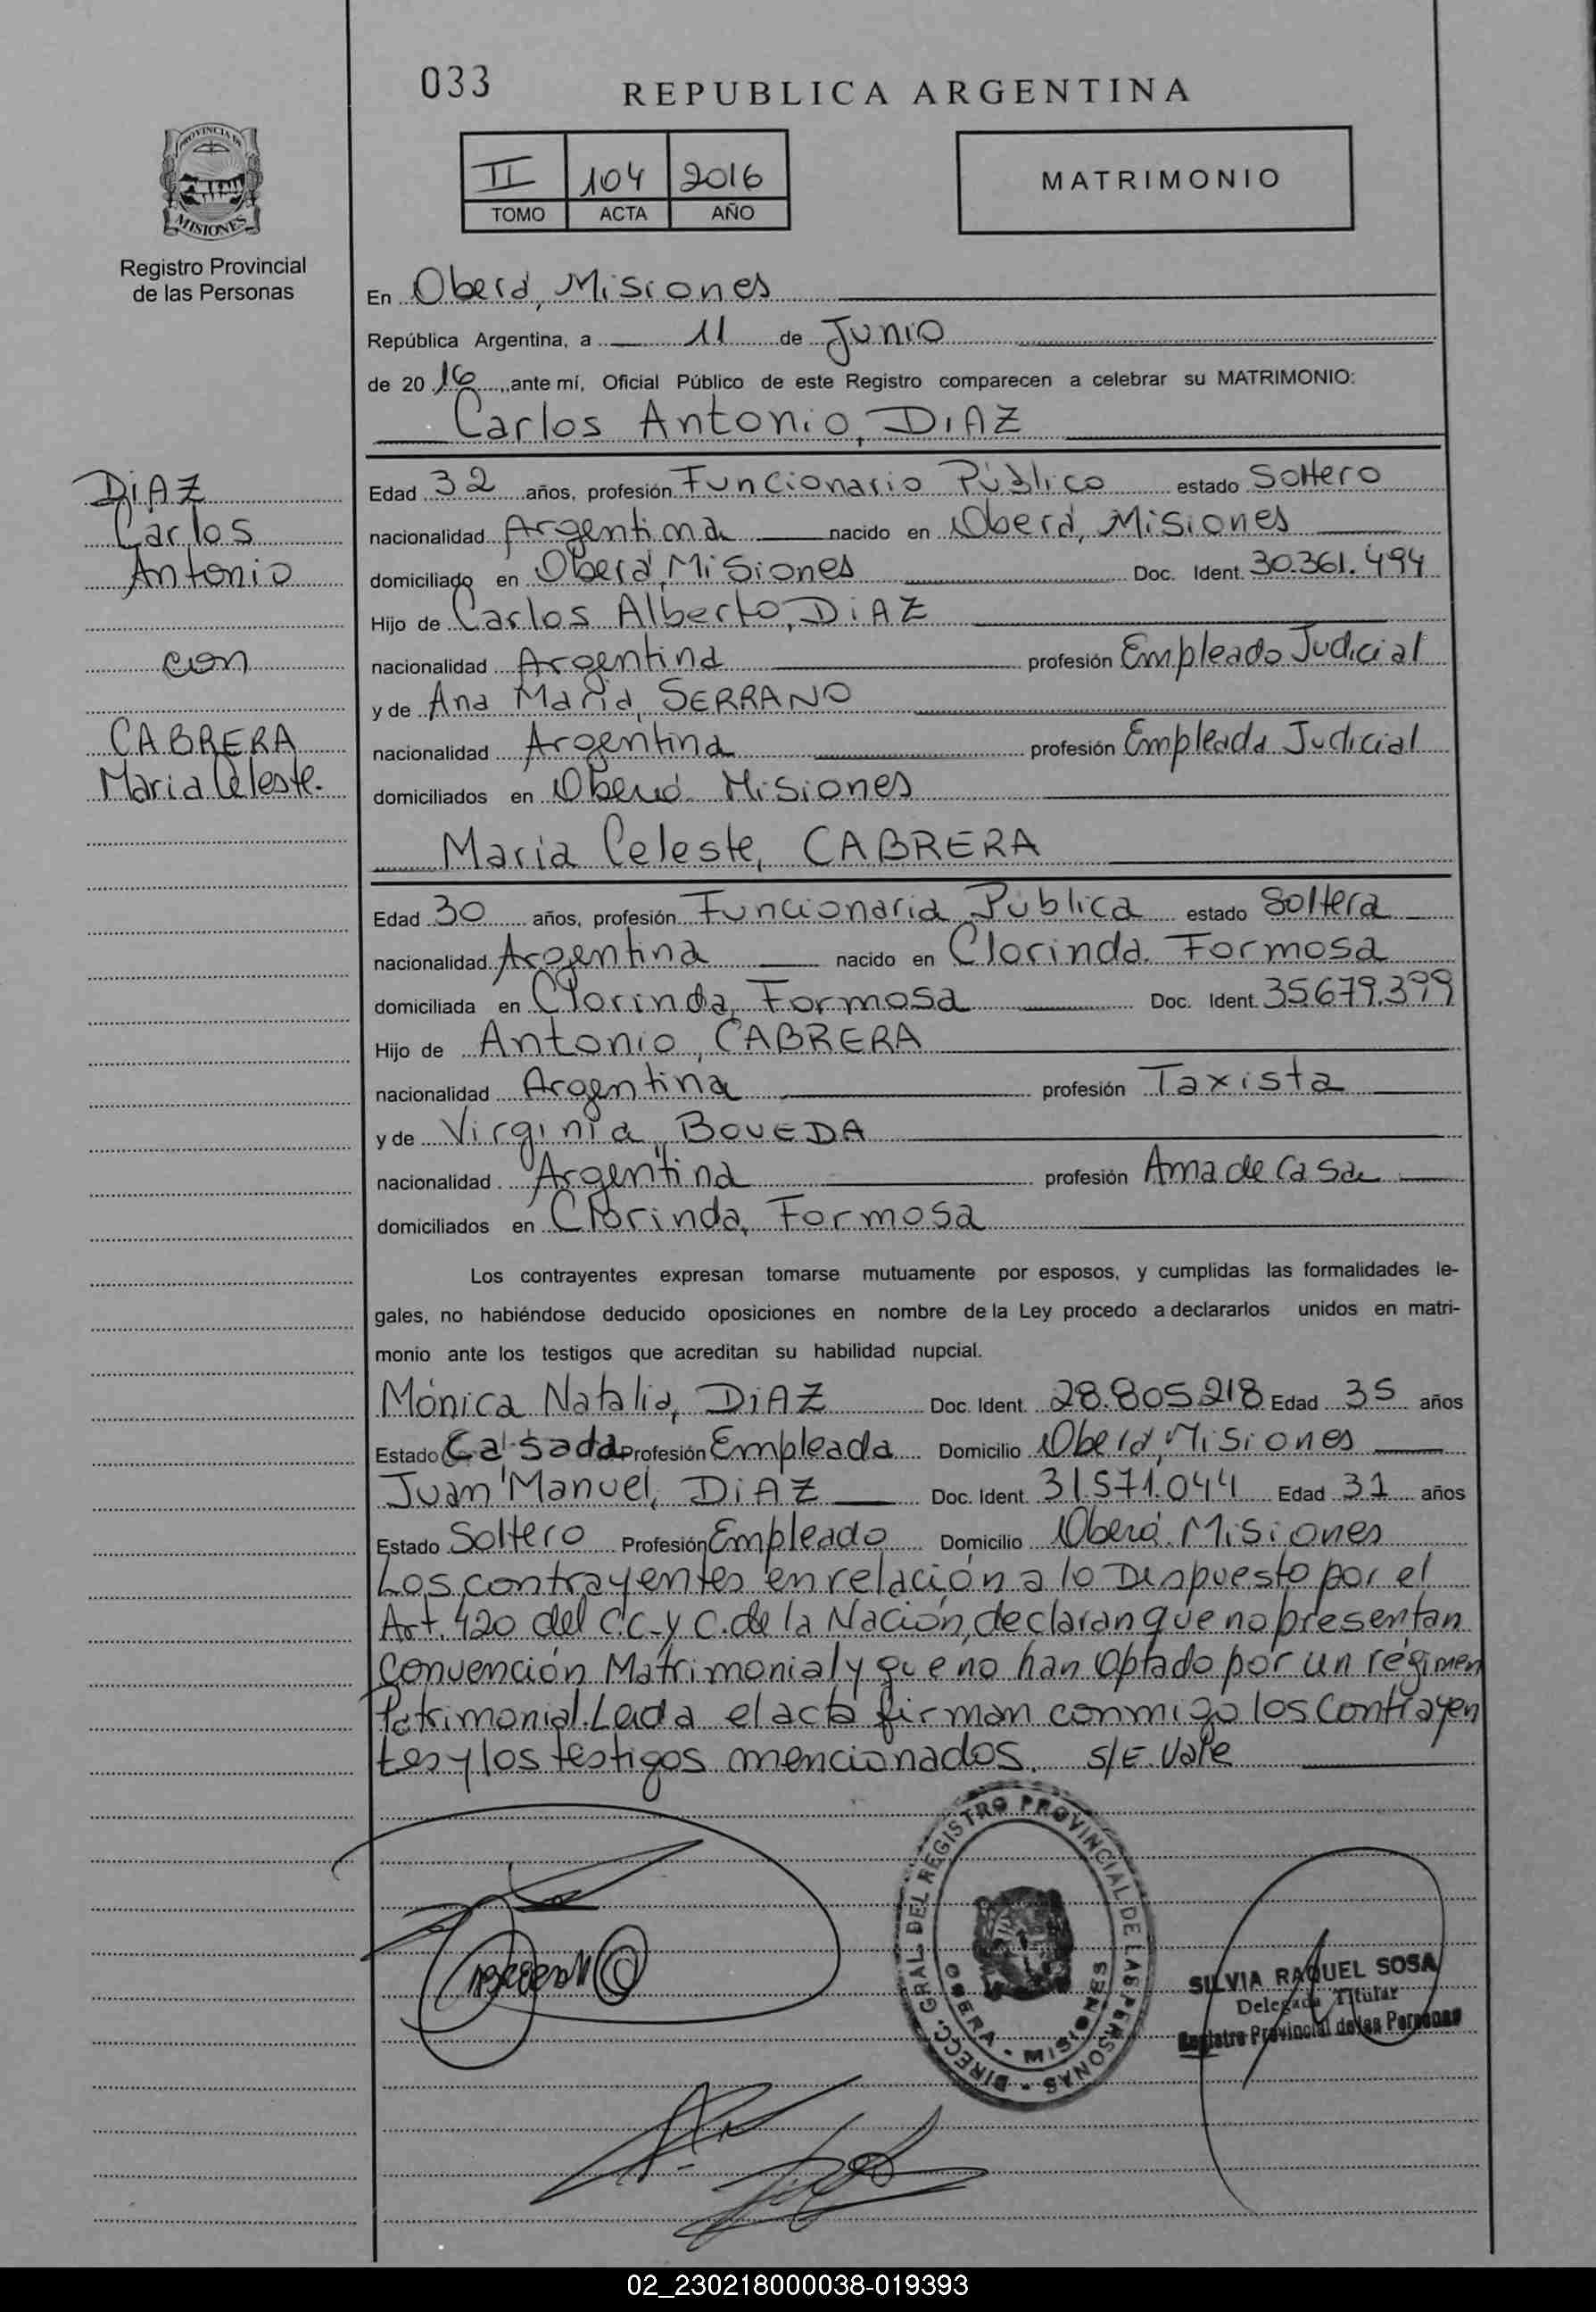 033
REPUBLICA ARGENTINA
II 104 2016
TOMO ACTA AÑO
MATRIMONIO
PROVINCIA DE
MISIONES
Registro Provincial
de las Personas
En Oberá, Misiones
República Argentina, a 11 de Junio
de 20 16, ante mí, Oficial Público de este Registro comparecen a celebrar su MATRIMONIO:
Carlos Antonio, DIAZ
DIAZ
Carlos
Antonio
con
CABRERA
Maria Celeste.
Edad 32 años, profesión Funcionario Público estado Soltero
nacionalidad Argentina nacido en Oberá, Misiones
domiciliado en Oberá, Misiones Doc. Ident. 30.361.494
Hijo de Carlos Alberto, DiAZ
nacionalidad Argentina profesión Empleado Judicial
y de Ana María, SERRANO
nacionalidad Argentina profesión Empleada Judicial
domiciliados en Oberá Misiones
María Celeste, CABRERA
Edad 30 años, profesión Funcionaria Pública estado Soltera
nacionalidad Argentina nacido en Clorinda. Formosa
domiciliada en Clorinda, Formosa Doc. Ident. 35679.399
Hijo de Antonio, CABRERA
nacionalidad Argentina profesión Taxista
y de Virginia, BOVEDA
nacionalidad Argentina profesión Ama de Casa
domiciliados en Clorinda, Formosa
Los contrayentes expresan tomarse mutuamente por esposos, y cumplidas las formalidades le-
gales, no habiéndose deducido oposiciones en nombre de la Ley procedo a declararlos unidos en matri-
monio ante los testigos que acreditan su habilidad nupcial.
Mónica Natalia, DiAZ Doc. Ident. 28.805.218 Edad 35 años
Estado Casada Profesión Empleada Domicilio Oberá, Misiones
Juan Manuel, DiAZ Doc. Ident. 31.571.044 Edad 31 años
Estado Soltero Profesión Empleado Domicilio Oberá. Misiones
Los contrayentes en relación a lo Dispuesto por el
Art. 420 del C.C. y C. de la Nación, declaran que no presentan
Convención Matrimonial y que no han optado por un régimen
Patrimonial. Leida el acta firman conmigo los Contrayen
tes y los testigos mencionados. S/E. Vale
DIRECC. GRAL. DEL REGISTRO PROVINCIAL DE LAS PERSONAS
OBERA - MISIONES
SILVIA RAQUEL SOSA
Delegada Titular
Registro Provincial de las Personas
02_230218000038-019393